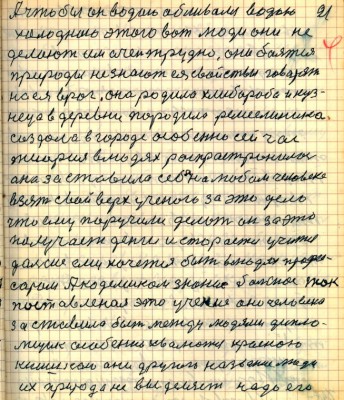 А чтобы он водою обливали водою 21
холодною этого вот люди они не
делают им оченътрудно, они боятся
природы незнают ея, свойствы говарят
на ея враг, она родила хлибароба и куз-
неца в деревни породила ремесленика
создола в городе особенно сей час
в людях
она заставила себя любом человека
взят свой верх ученого за это дело
что ему поручили делат он за это
получает денги и стораетя учится
далше ему хочется быть в людях профе-
саром Академиком знание божие так
поставленая это учение она человека
заставила быть между людями дипло-
особенно красною
они другого названи люди
их природа не выделяет надо его